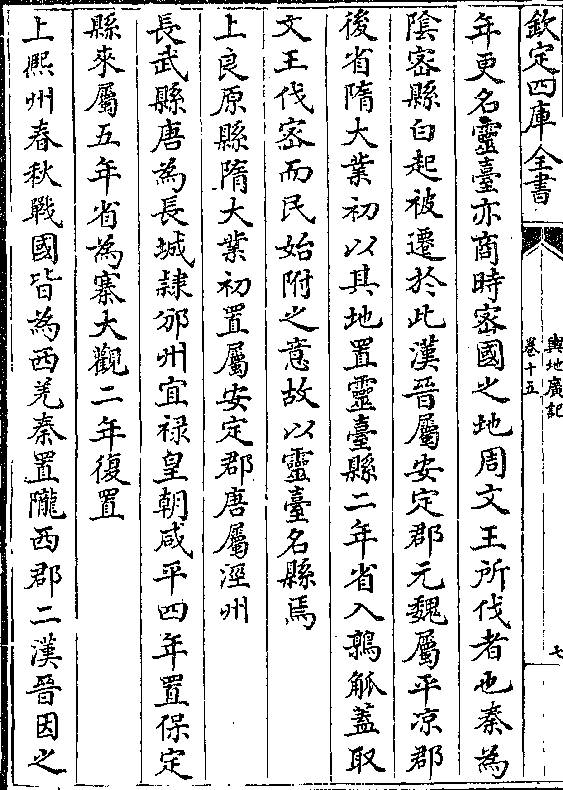 欽定四庫全書
輿地廣記
卷十五
七
年更名靈臺亦商時宻國之地周文王所伐者也秦為
隂宻縣白起被遷於此漢晉屬安定郡元魏屬平凉郡
後省隋大業初以其地置靈臺縣二年省入鶉觚蓋取
文王伐宻而民始附之意故以靈臺名縣焉
上良原縣隋大業初置屬安定郡唐屬涇州
長武縣唐為長城隷邠州宜禄皇朝咸平四年置保定
縣來屬五年省為寨大觀二年復置
上熙州春秋戰國皆為西羌秦置隴西郡二漢晉因之